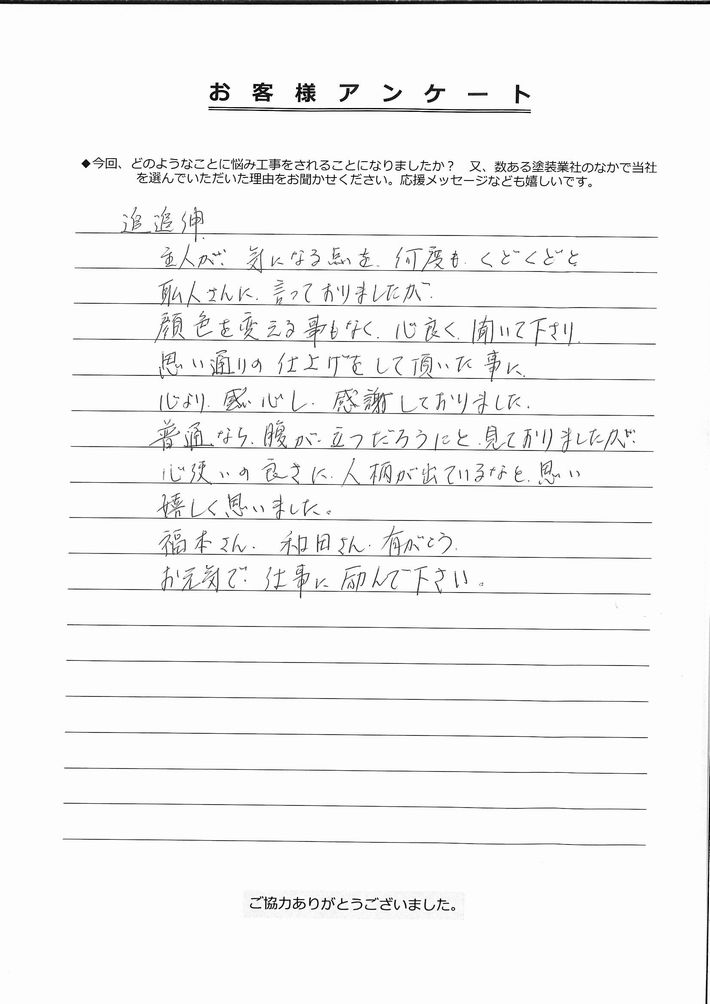 お客様アンケート
◆今回、どのようなことに悩み工事をされることになりましたか？　又、数ある塗装業社のなかで当社
を選んでいただいた理由をお聞かせください。応援メッセージなども嬉しいです。
追追伸
主人が、気になる点を、何度も、くどくどと
職人さんに、言っておりましたが、
顔色を変える事もなく、心良く、聞いて下さり、
思い通りの仕上げをして頂いた事に、
心より、感心し、感謝しておりました。
普通なら、腹が立つだろうにと、見ておりましたが、
心使いの良さに、人柄が出ているなと、思い
嬉しく思いました。
福本さん、和田さん、有がとう、
お元気で、仕事に励んで下さい。
ご協力ありがとうございました。